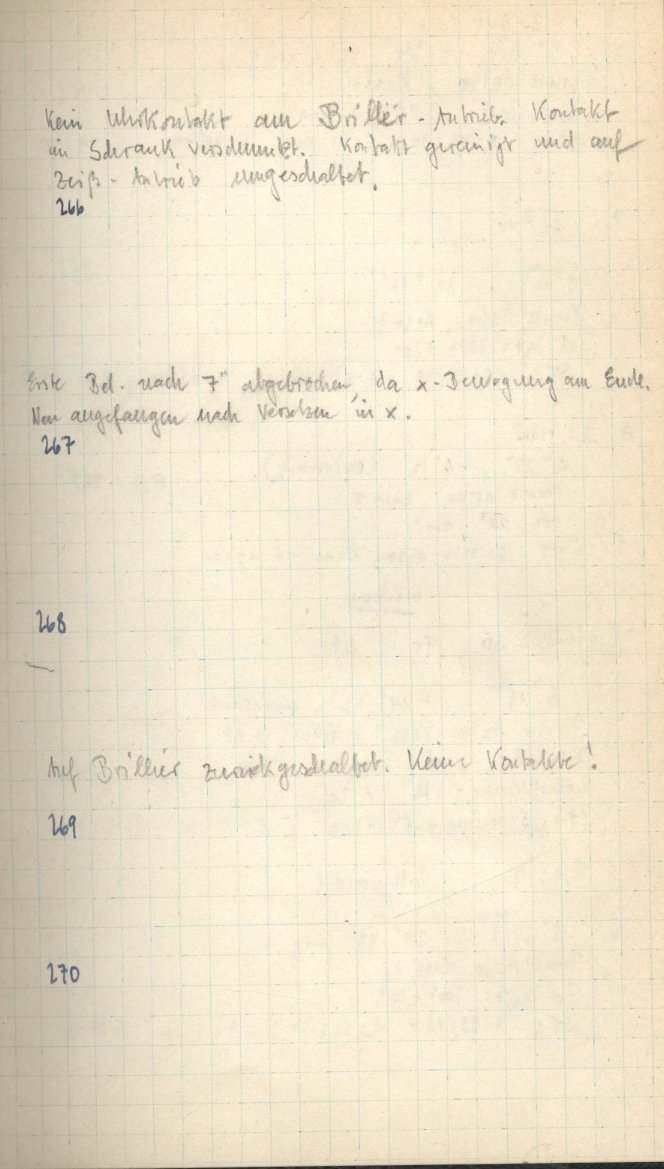 Kein Uhrkontakt am Brillier-Antrieb. Kontakt
im Schrank verschmutzt. Kontakt gereinigt und auf
Zeiß-Antrieb umgeschaltet.
266
Erste Bel. nach 7m abgebrochen, da x-Bewegung am Ende.
Neu angefangen nach Versetzen in x.
267
268
Auf Brillier zurückgeschaltet. Keine Kontakte!
269
270